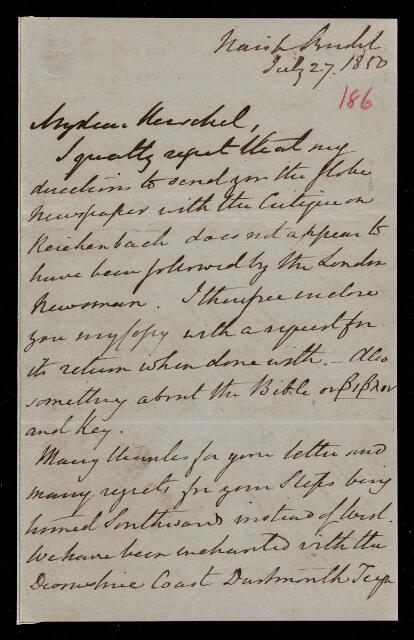 July 27. 1850
186
My dear Herschel,
I greatly regret that my
directions to send you the Globe
Newspaper with the Critique on
Reichenbach does not appear to
have been followed by the London
Newsman. I therefore enclose
you my Copy with a request for
its return when done with. – Also
something about the Bible or βιβλον
and Key.
Many thanks for your letter and
many regrets for your Steps being
turned Southwards instead of West.
We have been enchanted with the
Devonshire Coast Dartmouth Teign